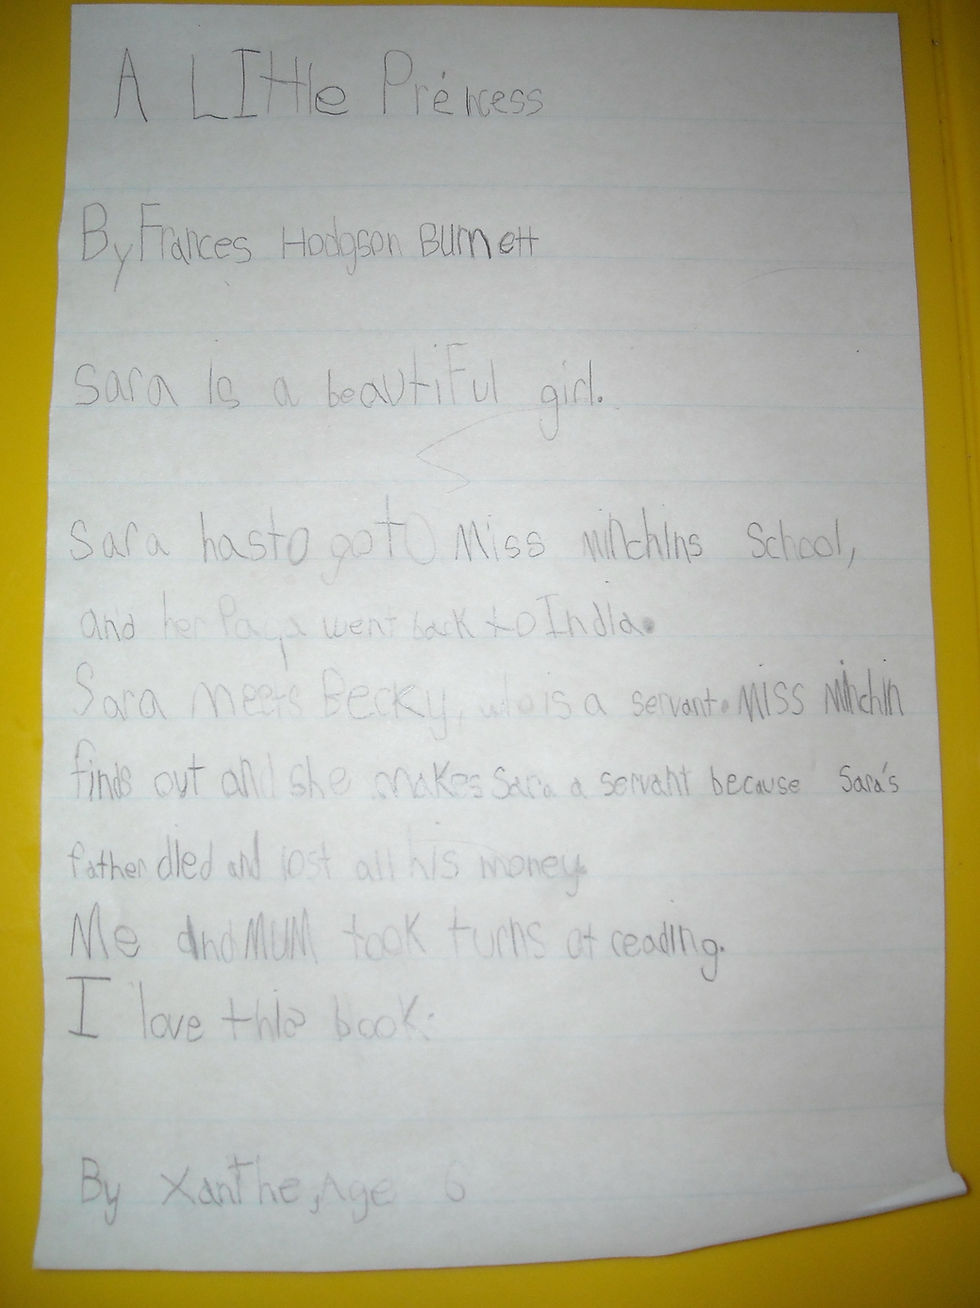 A LITtle Princess
By Frances Hodgson Burnett
Sara Is a beautiFul girl.
Sara has to go to Miss minchins School,
and her Papa went back to India.
Sara meets Becky, who is a servant. MISS Minchin
finds out and she makes Sara a servant because Sara's
father died and lost all his money.
Me and MUM took turns at reading.
I love this book.
By XanThe, Age 6